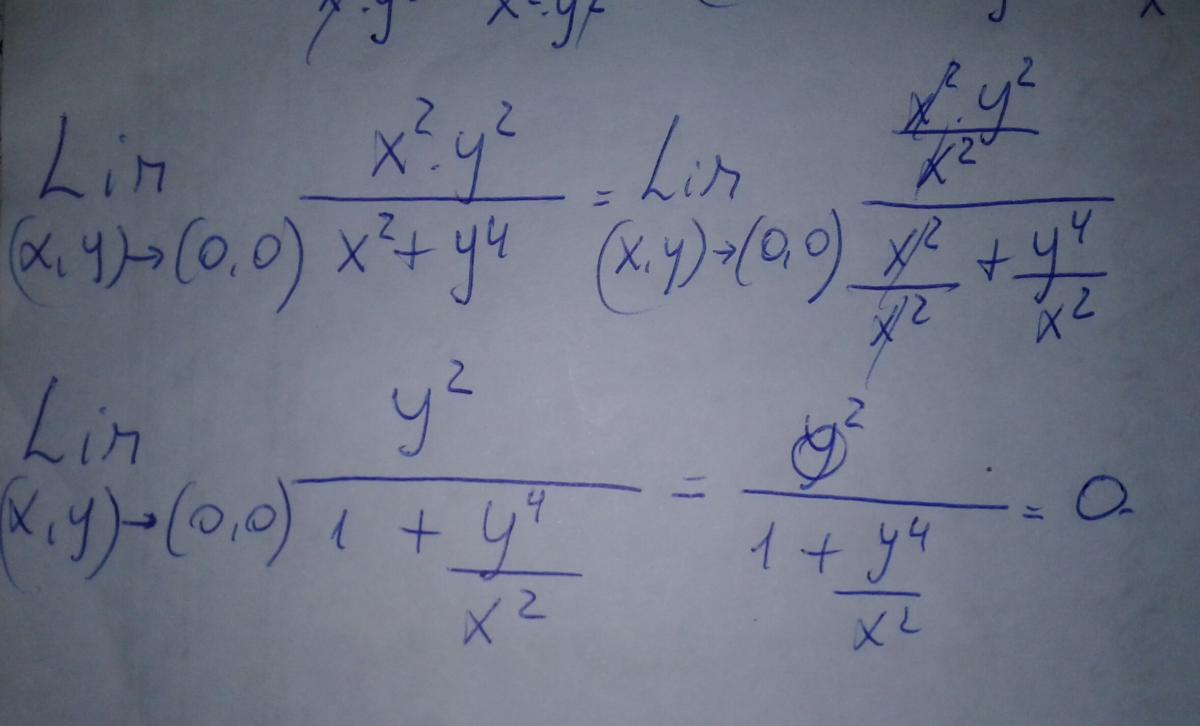 Lim (x,y)→(0,0) x²·y² / x²+y⁴ = Lim (x,y)→(0,0) x²·y²/x² / x²/x² + y⁴/x²
Lim (x,y)→(0,0) y² / 1 + y⁴/x² = y² / 1 + y⁴/x² = 0.